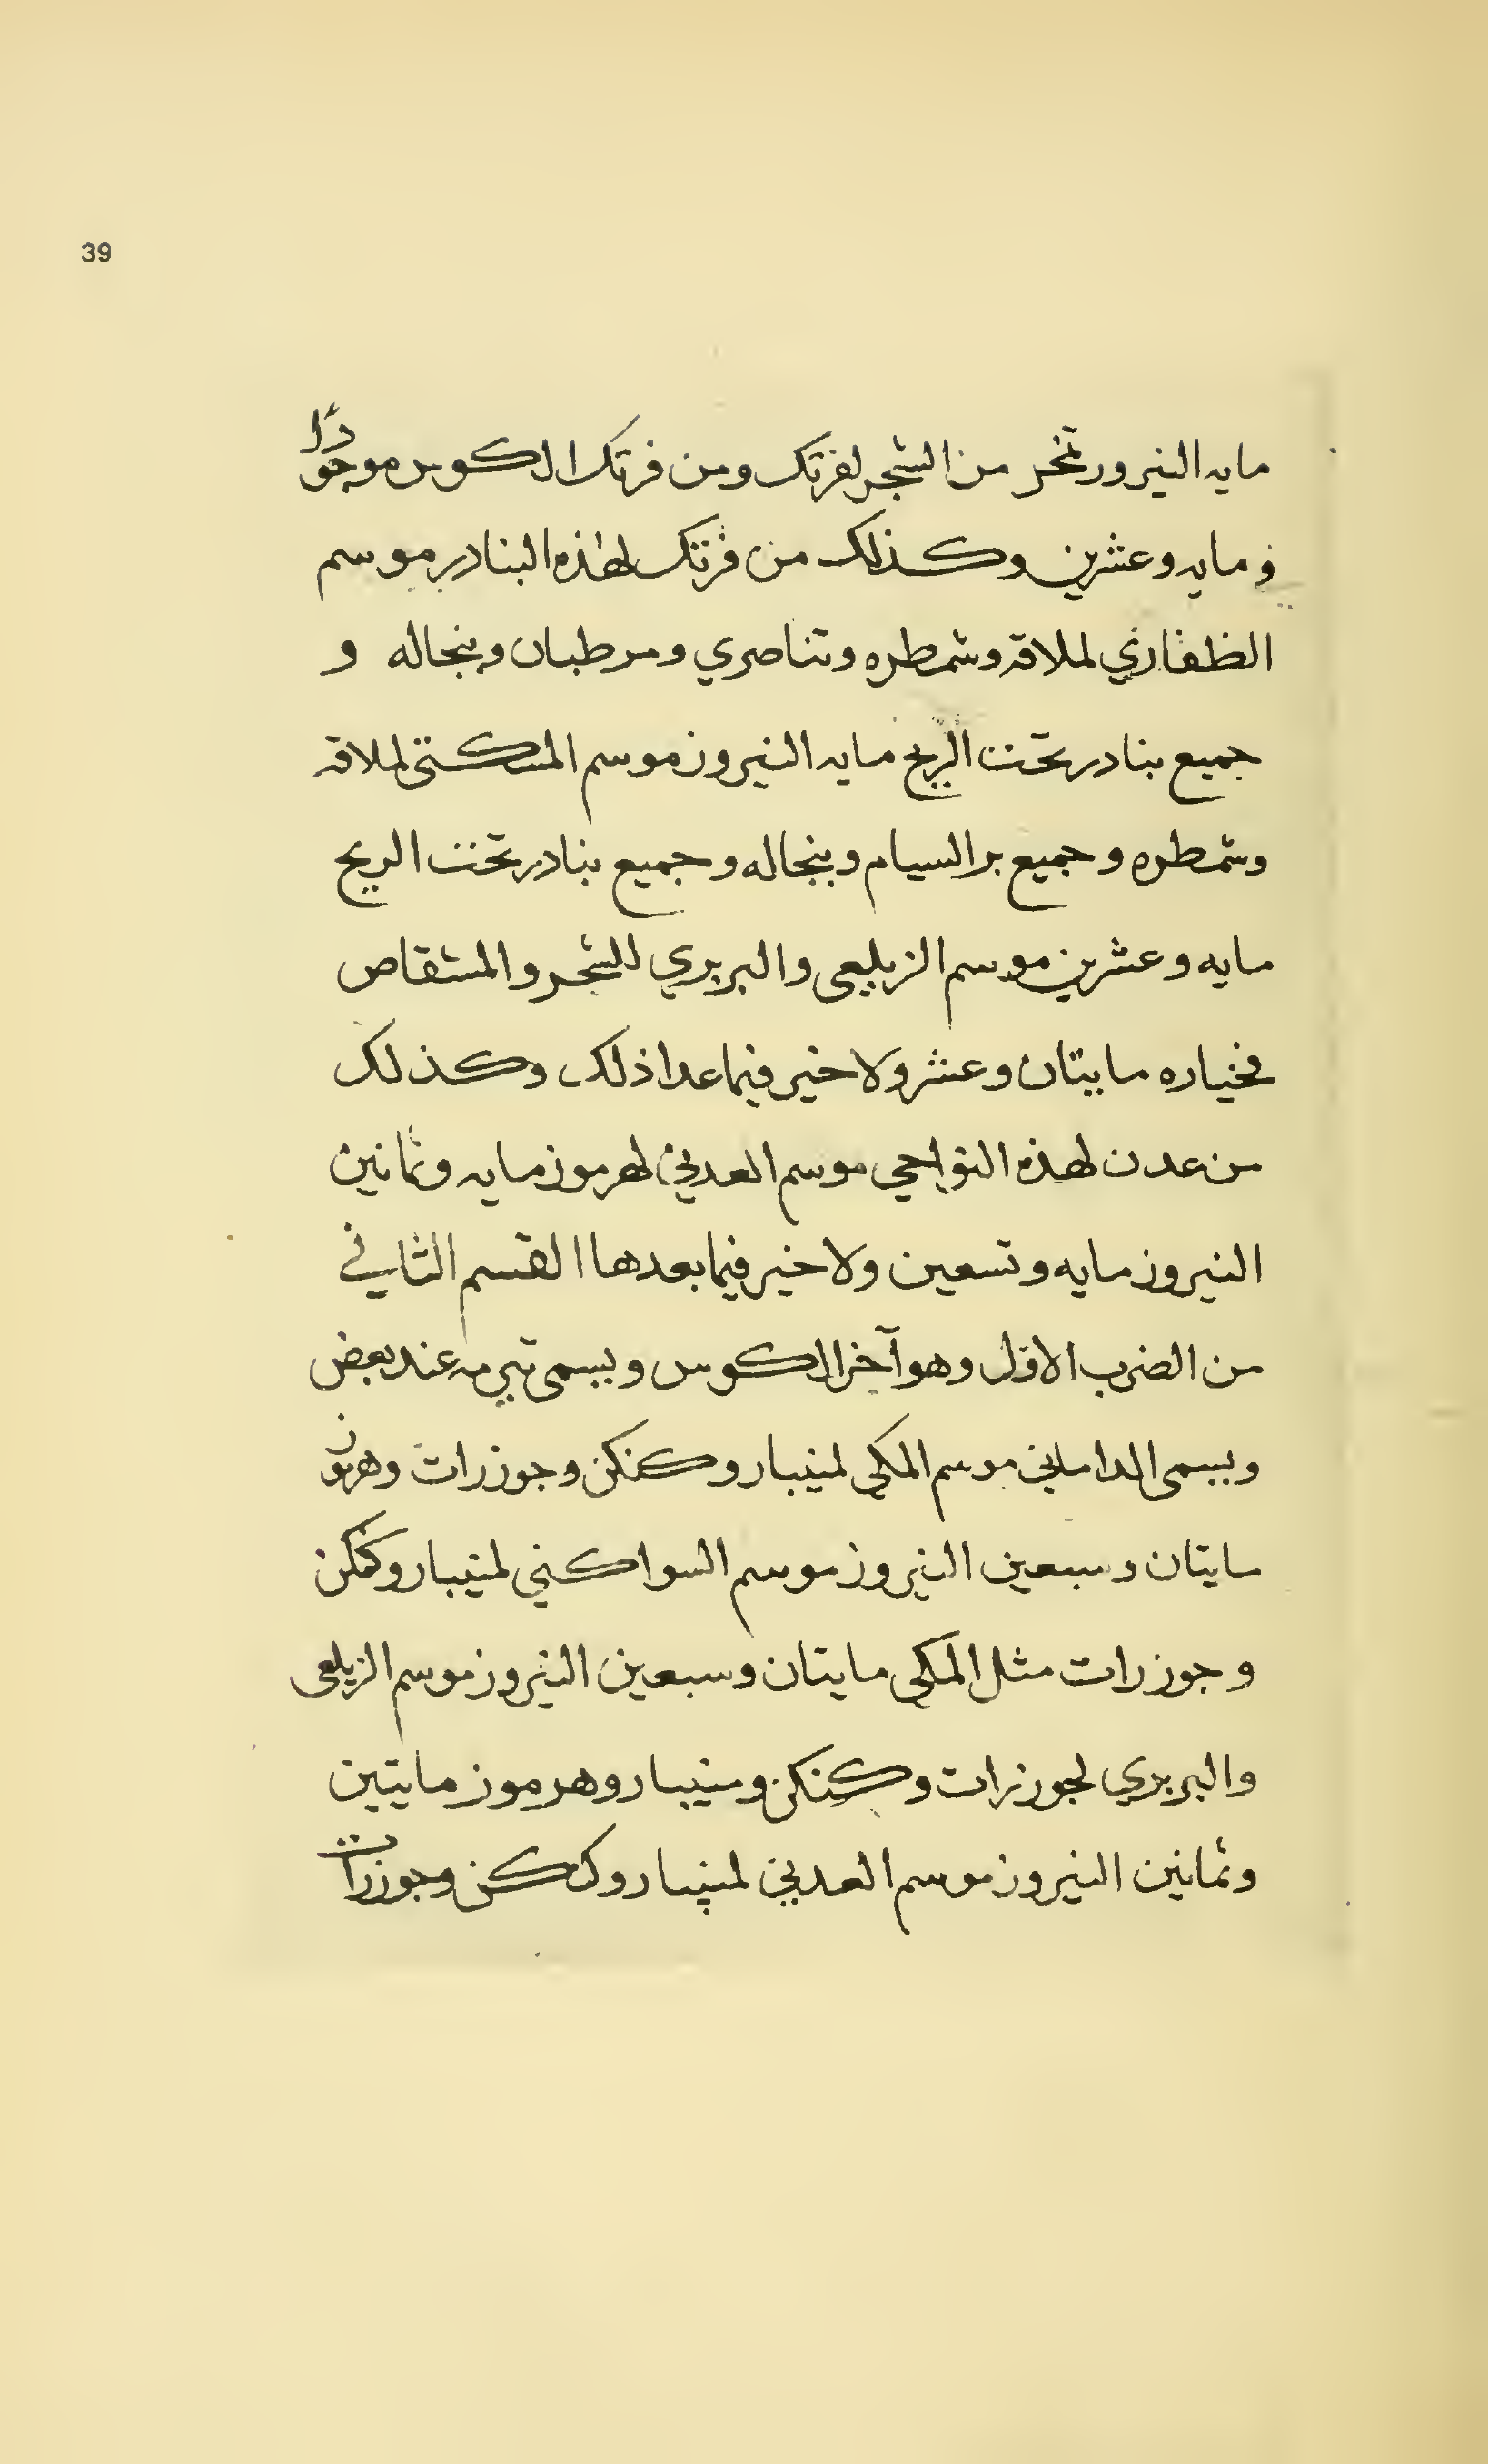 39
مايه النيرور تخر من الشجر لفرتك ومن فرتك الكوس موجودا
في مايه وعشرين وكذلك من فرتك لهذه البنادر موسم
الظفاري لملاقه وشمطره وتناصري ومرطبان وبنجاله و
جميع بنادر تحت الريح مايه النيروز موسم المسكتي لملاقه
وشمطره وجميع بر السيام وبنجاله وجميع بنادر تحت الريح
مايه وعشرين موسم الزيلعي والبربري للشحر والمشقاص
فخياره مايتان وعشر ولا خير فيما عدا ذلك وكذلك
من عدن لهذه النواحي موسم العدني لهرموز مايه وثمانين
النيروز مايه وتسعين ولا خير فيما بعدها القسم الثاني
من الضرب الاول وهو آخر الكوس ويسمى تيرمه عند بعض
ويسمى الداماني موسم المكي لمنيبار وكنكن وجوزرات وهرموز
مايتان وسبعين النيروز موسم السواكني لمنيبار وكنكن
وجوزرات مثل المكي مايتان وسبعين النيروز موسم الزيلعي
والبربري لجوزرات وكنكن ومنيبار وهرموز مايتين
وثمانين النيروز موسم العدني لمنيبار وكنكن وجوزرات